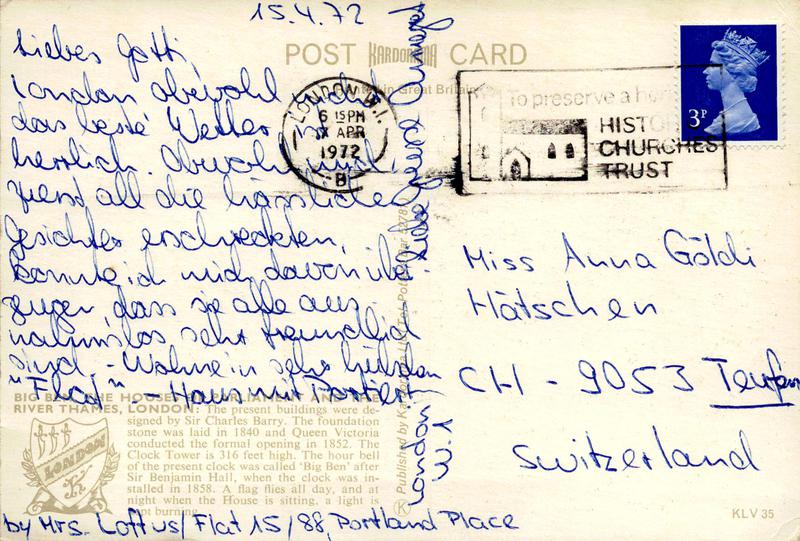 15.4.72
Liebes Gotti,
London obwohl nicht
das beste Wetter ist
herrlich. Obwohl mich
zuerst all die hässlichen
Gesichter erschreckten,
konnte ich mich davon über-
zeugen, dass sie alle aus-
nahmslos sehr freundlich
sind. - Wohne in sehr hübschen
"Flat" - Haus mit Portier!
by Mrs. Loftus / Flat 15/88, Portland Place
London W.1
Liebe Grüsse
POST KARDORAMA CARD
Printed in Great Britain
LONDON W.1.
6 15 PM
APR
1972
B
To preserve a
HISTORIC
CHURCHES
TRUST
3P
Miss Anna Göldi
Hätschen
CH - 9053 Teufen
Switzerland
BIG BEN, THE HOUSES OF PARLIAMENT AND THE
RIVER THAMES, LONDON: The present buildings were de-
signed by Sir Charles Barry. The foundation
stone was laid in 1840 and Queen Victoria
conducted the formal opening in 1852. The
Clock Tower is 316 feet high. The hour bell
of the present clock was called 'Big Ben' after
Sir Benjamin Hall, when the clock was in-
stalled in 1858. A flag flies all day, and at
night when the House is sitting, a light is
kept burning.
LONDON
K
Published by Kardorama Ltd., Potters Bar
KLV 35